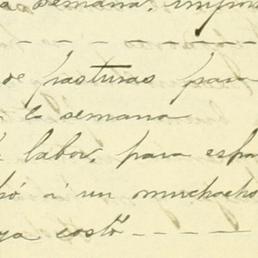 semana, impor
de pasturas para
la semana
labor, para espa
á un muchacho
ya costó